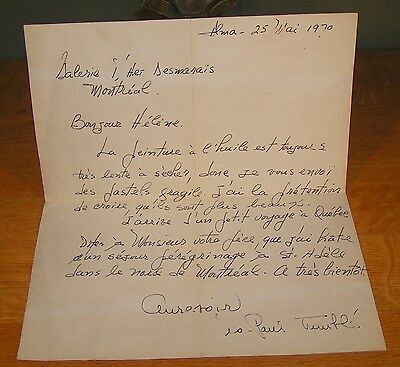 Alma - 25 Mai 1970
Galerie L'Art Desmarais
Montréal.
Bonjour Hélène.
La peinture à l'huile est toujours
très lente à sécher, donc je vous envoi
des pastels fragile. J'ai la prétention
de croire qu'ils sont plus beaux.
J'arrive d'un petit voyage à Québec
Dites à Monsieur votre père que j'ai hâte
d'un séjour pérégrinage à St. Adèle
dans le nord de Montréal. A très bientôt
Aurevoir
Paul Tremblé